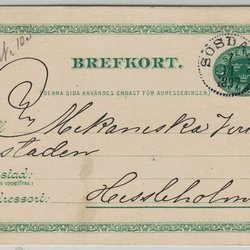 BREFKORT.
(DENNA SIDA ANVÄNDES ENDAST FÖR ADRESSERINGEN.)
SÖSD
Mekaniska Ver
staden
stad:
uppgifvas.)
dressort:
Hessleholm